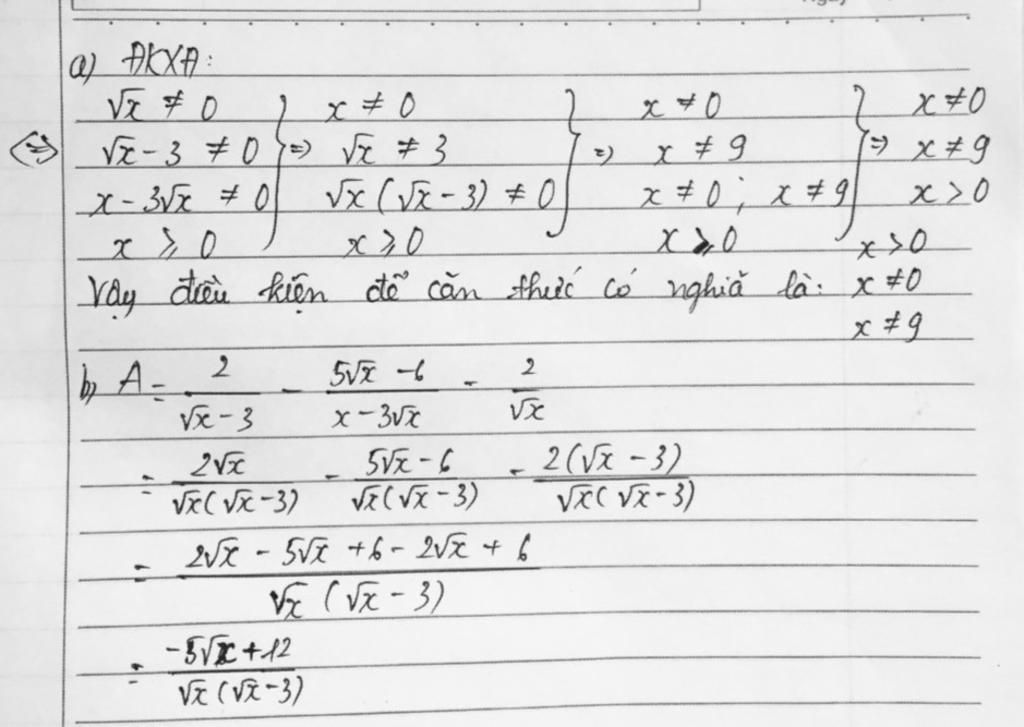 a) ĐKXĐ:
√x ≠ 0 } => x ≠ 0 } => x ≠ 0 } => x ≠ 0
<=> √x - 3 ≠ 0 √x ≠ 3 x ≠ 9 x ≠ 9
x - 3√x ≠ 0 √x(√x - 3) ≠ 0 x ≠ 0 ; x ≠ 9 x > 0
x ⩾ 0 x ⩾ 0 x ⩾ 0 x > 0
Vậy điều kiện để căn thức có nghĩa là: x ≠ 0
x ≠ 9
b) A = 2/(√x - 3) - (5√x - 6)/(x - 3√x) - 2/√x
= 2√x/(√x(√x - 3)) - (5√x - 6)/(√x(√x - 3)) - 2(√x - 3)/(√x(√x - 3))
= (2√x - 5√x + 6 - 2√x + 6)/(√x(√x - 3))
= (-5√x + 12)/(√x(√x - 3))